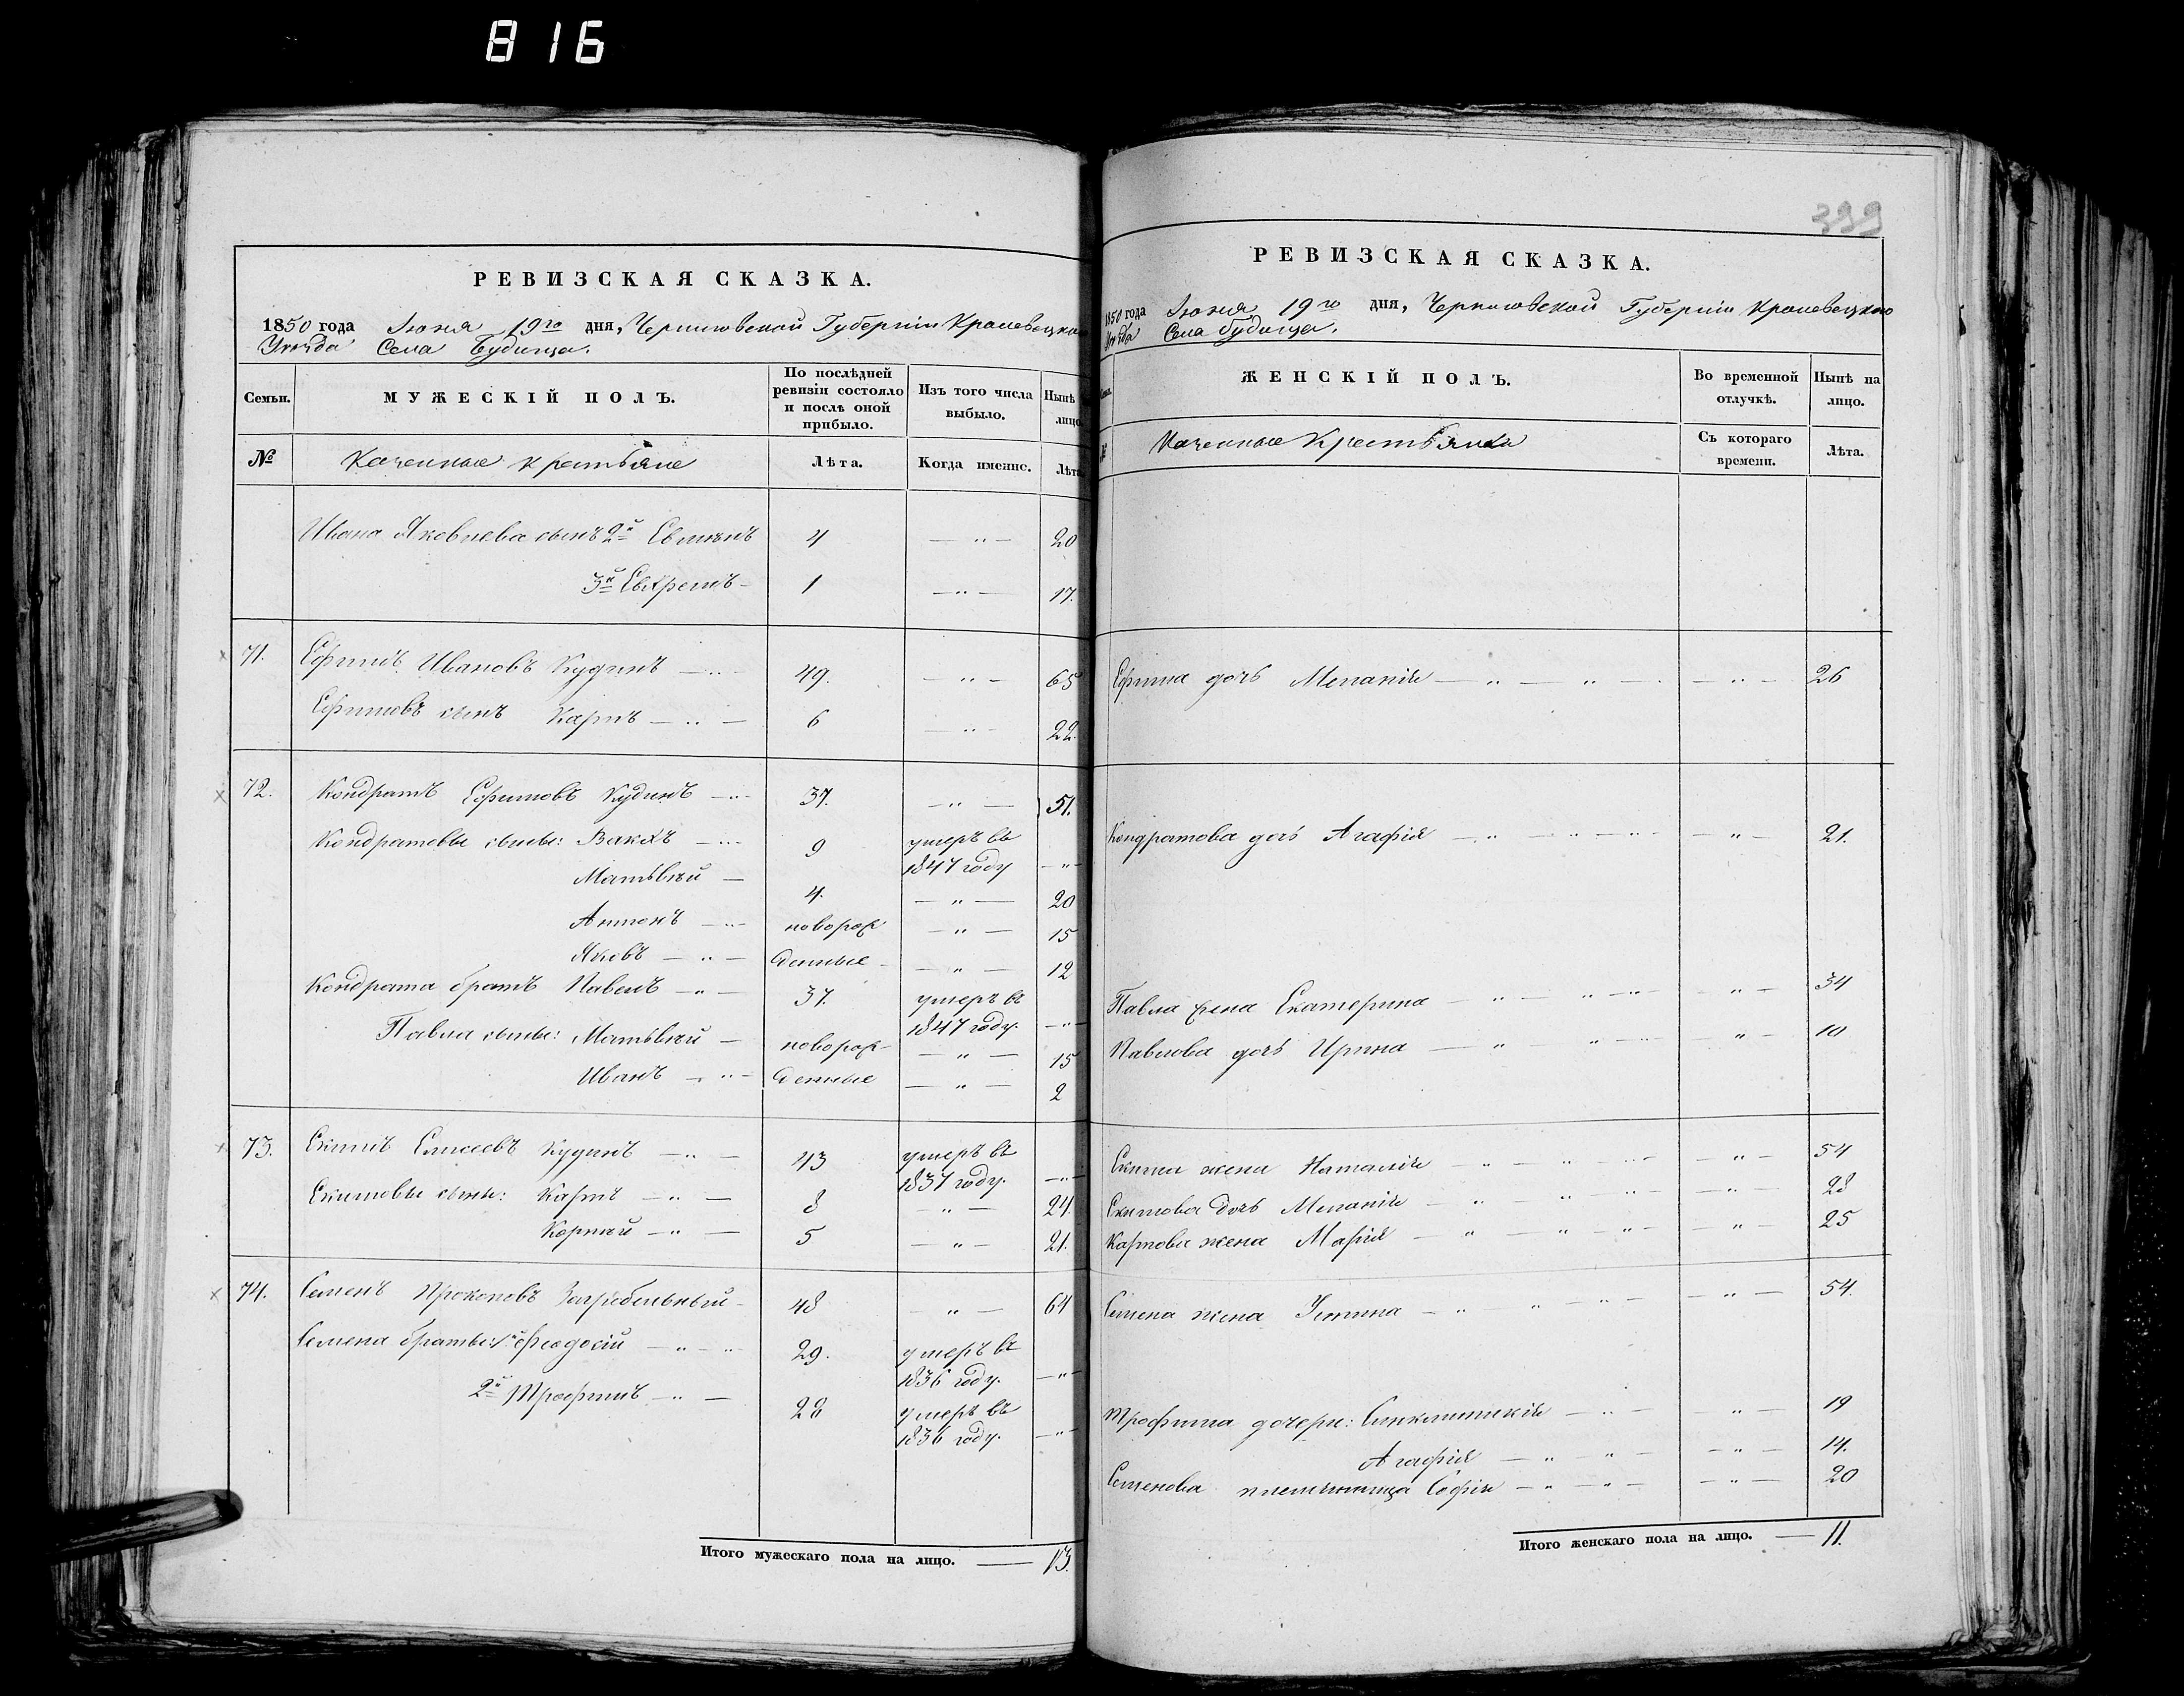 816
399
РЕВИЗСКАЯ СКАЗКА.
1850 года Іюня 19го дня, Черниговской Губерніи Кролевецкаго
Уѣзда Села Будища.
Семьи.
МУЖЕСКІЙ ПОЛЪ.
По послѣдней ревизіи состояло и послѣ оной прибыло.
Изъ того числа выбыло.
Нынѣ лицо
№
Казенные крестьяне
Лѣта.
Когда именно.
Лѣта
Ивана Яковлева сынъ 2й 4 — " — 20
3й Евхремъ — 1 — " — 17.
71. Ефимъ Ивановъ Кудинъ — " — 49. — " — 65
Ефимовъ сынъ Карпъ — " — 6 — " — 22.
72. Кондратъ Ефимовъ Кудинъ — " — 37. — " — 51.
Кондратовы сыны: Вакхъ — " — 9 умеръ въ 1847 году — " —
Матвѣй — 4. — " — 20
Антонъ — " — новорож — " — 15
Яковъ — " — денные — " — 12
Кондрата братъ Павелъ — " — 37. умеръ въ 1847 году. — " —
Павла сыны: Матвѣй — новорож — " — 15
Иванъ — " — денные — " — 2
73. Екимъ Елисеевъ Кудинъ — " — 43 умеръ въ 1837 году. — " —
Екимовы сыны: Карпъ — " — 8 — " — 24.
Корнѣй — " — 5 — " — 21.
74. Семенъ Прокоповъ Загребельный — 48 — " — 64
Семена братья: 1й Феодосій — " — 29. умеръ въ 1836 году. — " —
2й Трофимъ — " — 28 умеръ въ 1836 году. — " —
Итого мужескаго пола на лицо. — 13.
РЕВИЗСКАЯ СКАЗКА.
1850 года Іюня 19го дня, Черниговской Губерніи Кролевецкаго
Уѣзда Села Будища.
ЖЕНСКІЙ ПОЛЪ.
Во временной отлучкѣ.
Нынѣ на лицо.
Казенные Крестьянки
Съ котораго времени.
Лѣта.
Ефима дочь Меланія — " — " — — " — 26
Кондратова дочь Агафія — " — " — " — — " — 21.
Павла жена Екатерина — " — " — " — — " — 34
Павлова дочь Ирина — " — " — — " — 10
Екима жена Наталія — " — " — " — — " — 54
Екимова дочь Меланія — " — " — " — — " — 28
Карпова жена Марія — " — " — " — — " — 25
Семена жена Устина — " — " — " — — " — 54.
Трофима дочери: Синклитикія — " — — " — 19
Агафія — " — " — " — 14.
Семенова племянница Софія — " — " — — " — 20
Итого женскаго пола на лицо. — 11.